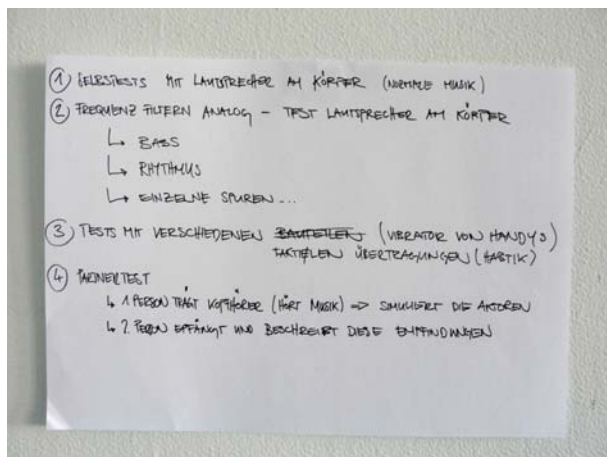 ① SELBSTTESTS MIT LAUTSPRECHER AM KÖRPER (NORMALE MUSIK)
② FREQUENZ FILTERN ANALOG – TEST LAUTSPRECHER AM KÖRPER
↳ BASS
↳ RHYTHMUS
↳ EINZELNE SPUREN...
③ TESTS MIT VERSCHIEDENEN BAUTEILEN (VIBRATOR VON HANDYS)
TAKTIELEN ÜBERTRAGUNGEN (HAPTIK)
④ PARTNERTEST
↳ 1. PERSON TRÄGT KOPFHÖRER (HÖRT MUSIK) => SIMULIERT DIE AKTOREN
↳ 2. PERSON EMPFÄNGT UND BESCHREIBT DIESE EMPFINDUNGEN